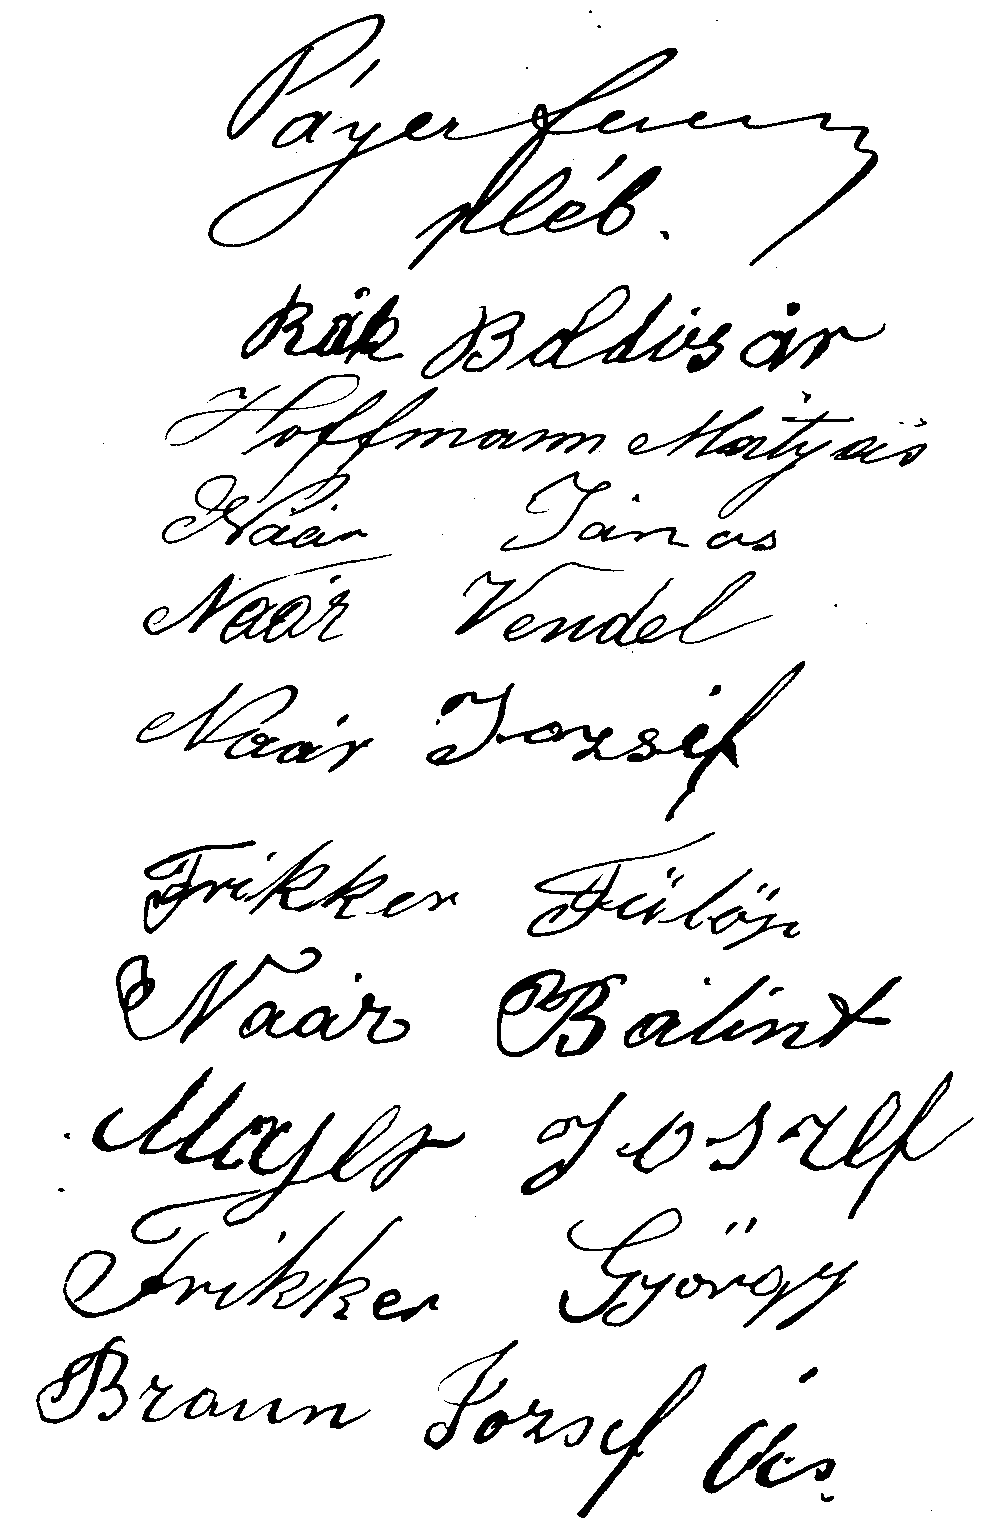 Páyer Ferencz
pléb.
Rák Boldisár
Hoffmann Mátyás
Naár János
Naár Vendel
Naár Jozsef
Frikker Fülöp
Naár Bálint
Mayer Joszef
Frikker György
Braun Jozsef